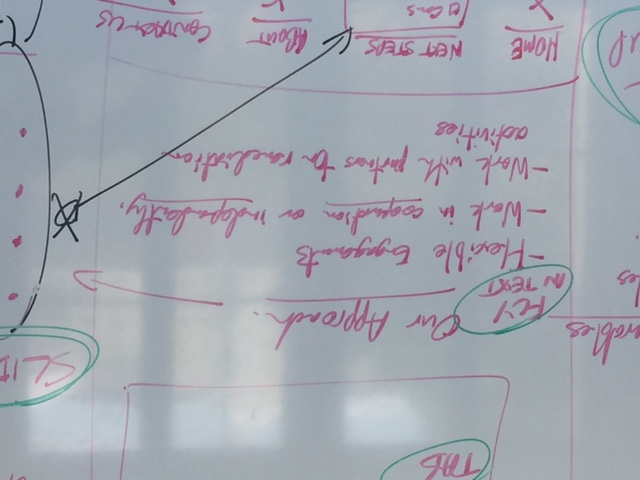 TAB
SLID
FLY
IN TEXT
Our Approach.
- Flexible Engagements
- Work in cooperation or independently.
- Work with partners for remediation
activities
UP
HOME
NEXT STEPS
ABOUT
CONTACT US